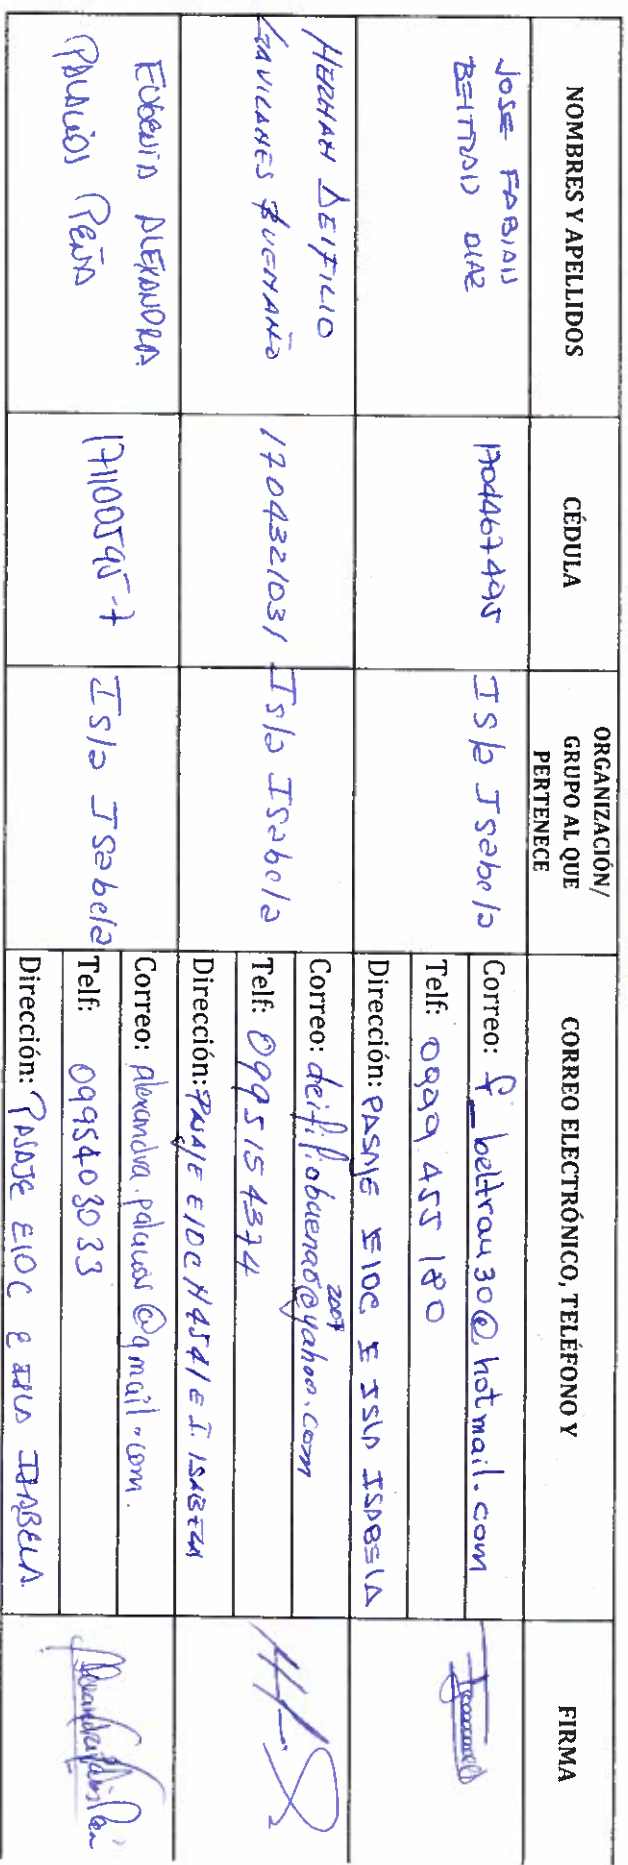 NOMBRES Y APELLIDOS
CÉDULA
ORGANIZACIÓN/
GRUPO AL QUE
PERTENECE
CORREO ELECTRÓNICO, TELÉFONO Y
FIRMA
JOSE FABIAN
BELTRAN DIAZ
1704467495
Isla Isabela
Correo: f_beltran30@hotmail.com
Telf: 0999 455 180
Dirección: PASAJE E10C E ISLA ISABELA
HERNAN DEIFILIO
GAVILANES BUENAÑO
1704321031
Isla Isabela
Correo: deifiliobuenao@yahoo.com
2007
Telf: 0995154374
Dirección: PASAJE E10C N4541 E I. ISABELA
EUGENIA ALEXANDRA
PALACIOS PEÑA
171100595-7
Isla Isabela
Correo: alexandra.palacios@gmail.com.
Telf: 0995403033
Dirección: PASAJE E10C E ISLA ISABELA